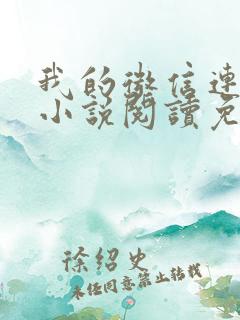 我的微信連
小說閱讀免
徐绍史
未经同意禁止转载